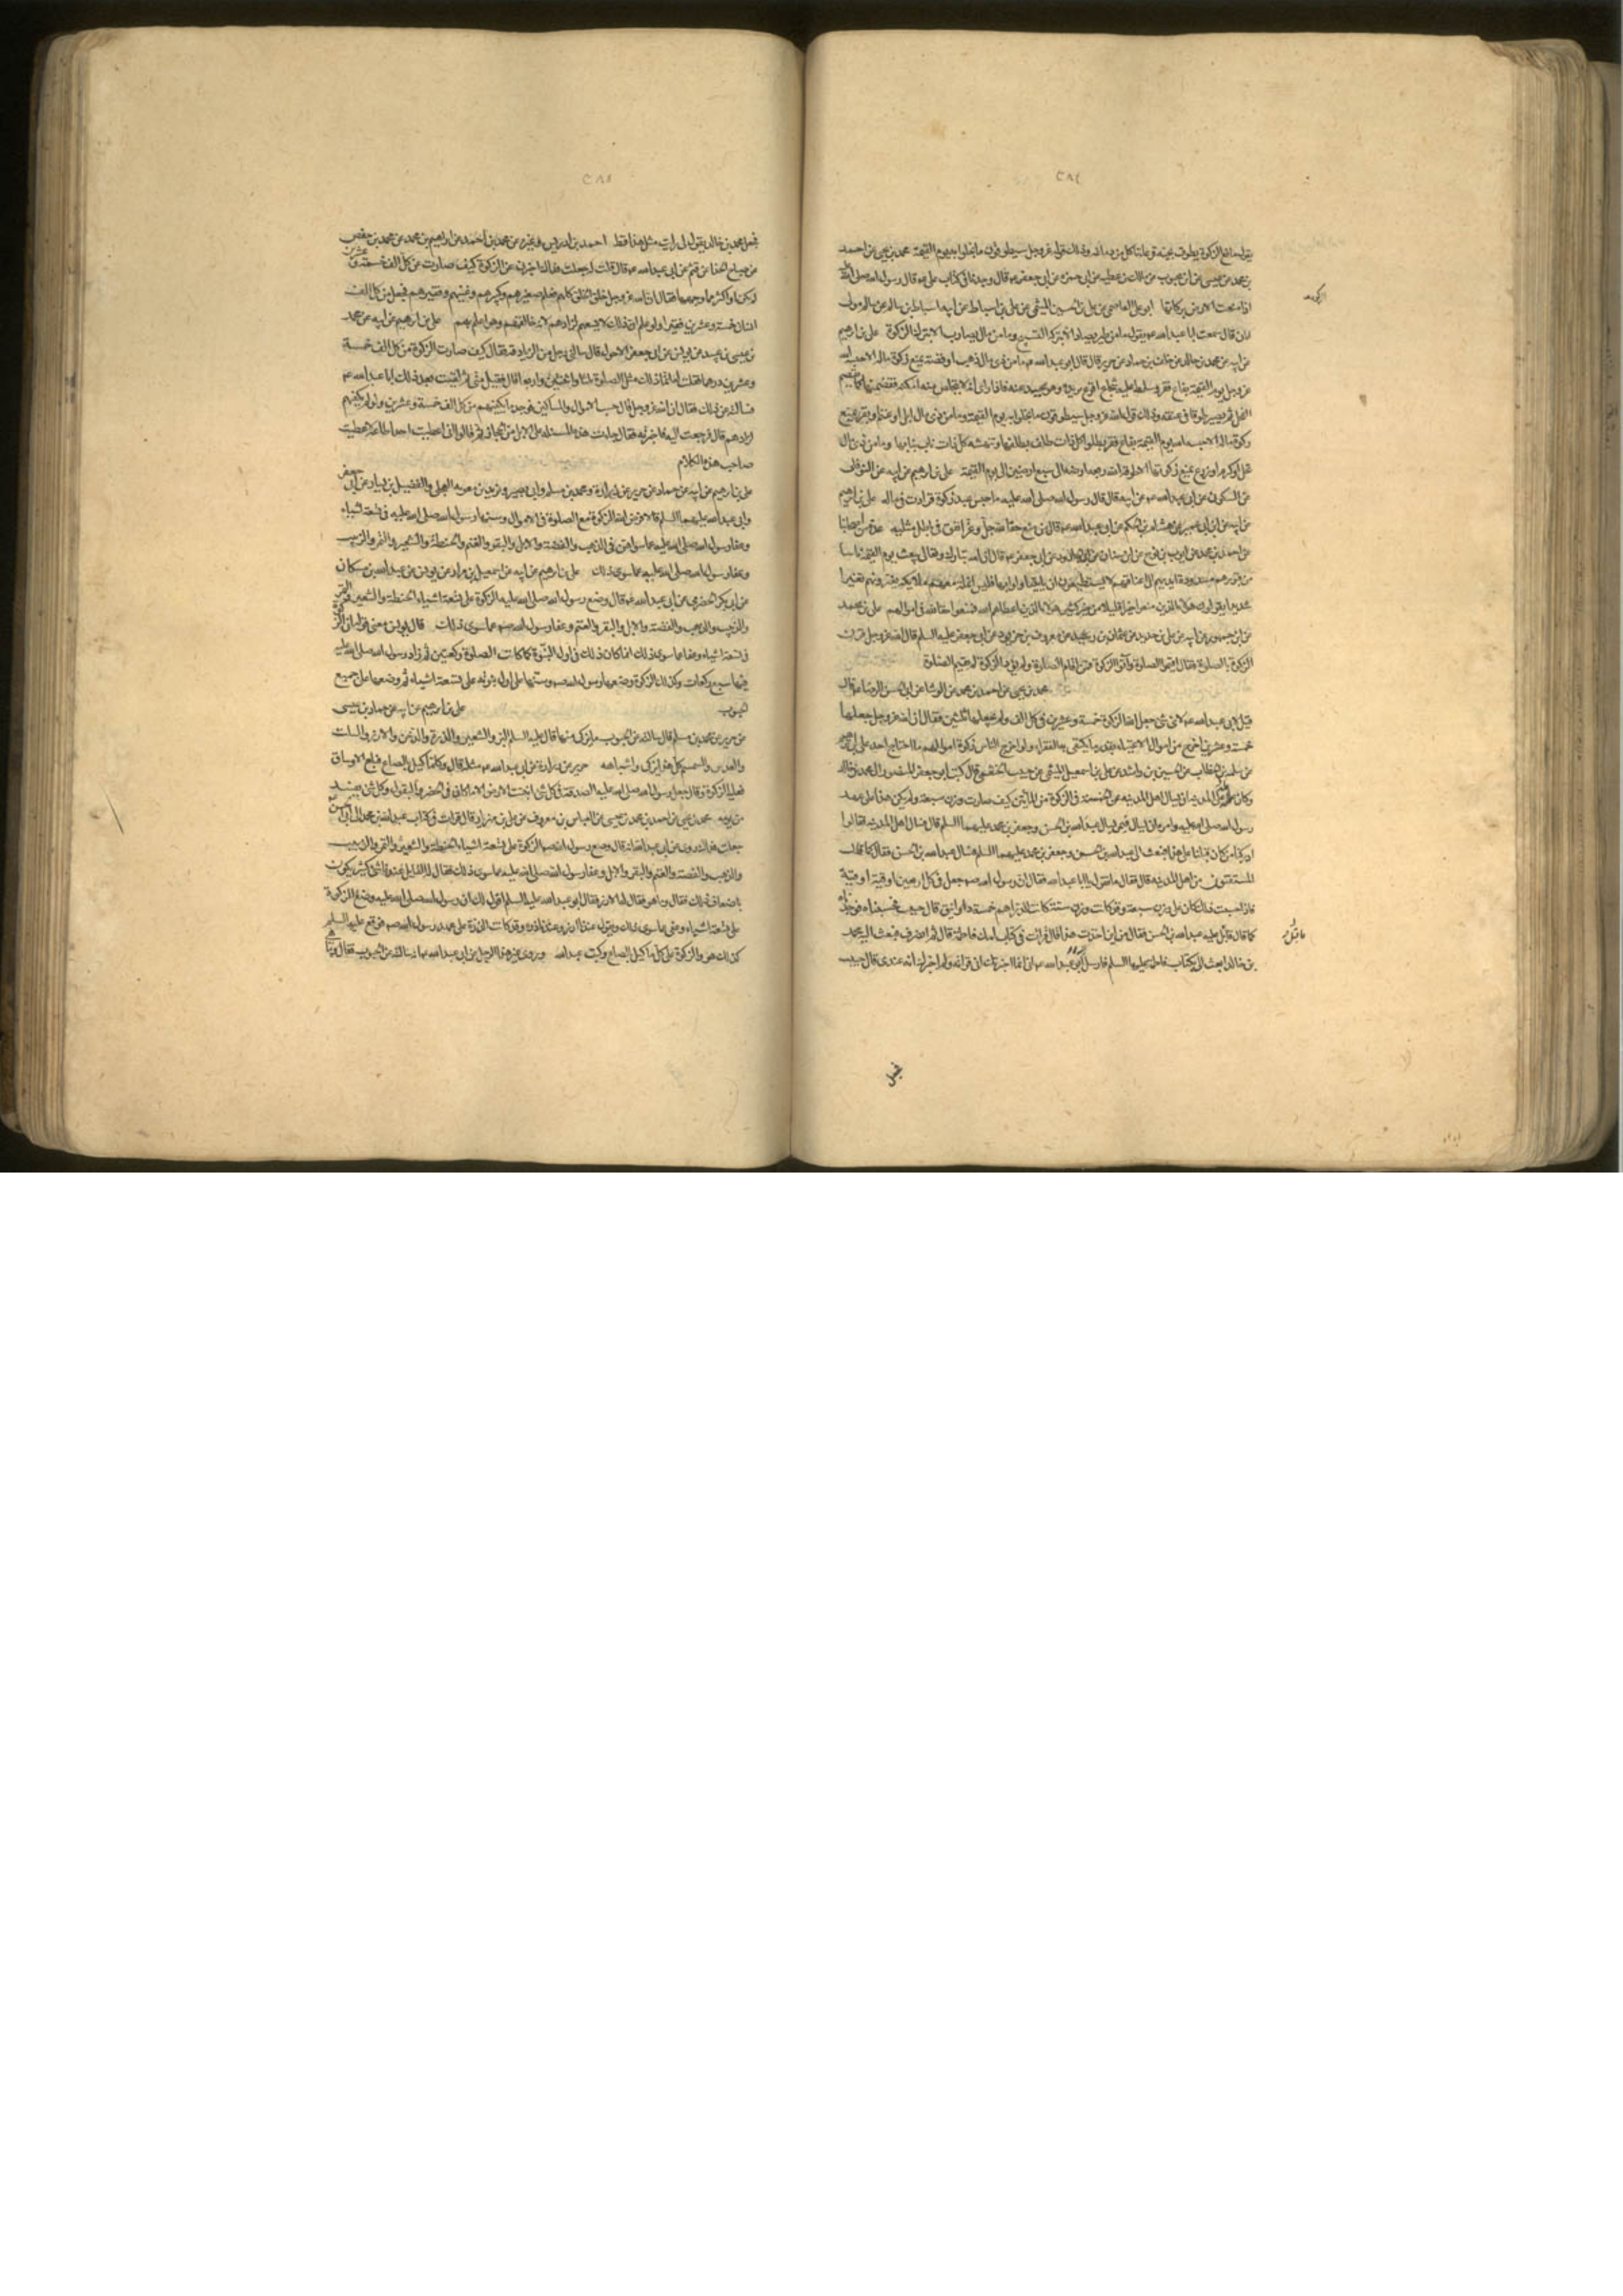 ٢٨٤
يقول مانع الزكوة يطوق بحية قرعاء تاكل من دماغه وذلك قوله عز وجل سيطوقون ما بخلوا به يوم القيمة محمد بن يحيى عن احمد
بن محمد بن عيسى عن ابن محبوب عن مالك بن عطيه عن ابى حمزه عن ابى جعفر ع قال وجدنا فى كتاب على ع قال رسول الله صلى الله
اذا منعت الزكوة منعت الارض بركاتها ابو على العاصمى عن على بن الحسين الميثمى عن على بن اسباط عن ابيه اسباط بن سالم عن سالم مولى
ابان قال سمعت ابا عبد الله ع يقول ما من طير يصاد الا بتركه التسبيح وما من مال يصاب الا بترك الزكوة على بن ابرهيم
عن ابيه عن محمد بن خالد عن خلف بن حماد عن حريز قال قال ابو عبد الله ع ما من ذى مال ذهب او فضة يمنع زكوة ماله الا حبسه الله
عز وجل يوم القيمة بقاع قرقر وسلط عليه شجاع اقرع يريده وهو يحيد عنه فاذا راى انه لا يتخلص منه امكنه من يده فقضمها كما يقضم
الفحل ثم يصير طوقا فى عنقه وذلك قول الله عز وجل سيطوقون ما بخلوا به يوم القيمة وما من ذى مال ابل او غنم او بقر يمنع
زكوة ماله الا حبسه الله يوم القيمة بقاع قرقر يطؤه كل ذات ظلف بظلفها وتنهشه كل ذات ناب بنابها وما من ذى مال
نخل او كرم او زرع يمنع زكوتها الا طوقه الله ريعة ارضه الى سبع ارضين الى يوم القيمة على بن ابرهيم عن ابيه عن النوفلى
عن السكونى عن ابى عبد الله ع عن ابيه قال قال رسول الله صلى الله عليه ما حبس عبد زكوة فزادت فى ماله على بن ابرهيم
عن ابيه عن ابن ابى عمير عن هشام بن الحكم عن ابى عبد الله ع قال من منع حقا لله عز وجل انفق فى باطل مثليه عدة من اصحابنا
عن احمد بن محمد عن ايوب بن نوح عن ابن سنان عن ابى الجارود عن ابى جعفر ع قال ان الله تبارك وتعالى يبعث يوم القيمة ناسا
من قبورهم مشدودة ايديهم الى اعناقهم لا يستطيعون ان يتناولوا بها قيس انملة معهم ملائكة يعيرونهم تعييرا
شديدا يقولون هؤلاء الذين منعوا خيرا قليلا من خير كثير هؤلاء الذين اعطاهم الله فمنعوا حق الله فى اموالهم على بن محمد
الزكوة بالصلوة فقال اقيموا الصلوة وآتوا الزكوة فمن اقام الصلوة ولم يؤت الزكوة لم يقيم الصلوة
محمد بن يحيى عن احمد بن محمد عن الوشا عن ابى الحسن الرضا ع قال
قيل لابى عبد الله ع لاى شى جعل الله الزكوة خمسة وعشرين فى كل الف ولم يجعلها ثلثين فقال ان الله عز وجل جعلها
خمسة وعشرين اخرج من اموال الاغنياء بقدر ما يكتفى به الفقراء ولو اخرج الناس زكوة اموالهم ما احتاج احد على بن ابرهيم
عن سلمة بن الخطاب عن الحسين بن راشد عن على بن اسمعيل الميثمى عن حبيب الخثعمى قال كتب ابو جعفر المنصور الى محمد بن خالد
وكان عامله على المدينه ان يسال اهل المدينه عن الخمسة فى الزكوة من المأتين كيف صارت وزن سبعة ولم يكن هذا على عهد
رسول الله صلى الله عليه وامره ان يسال فيمن يسال عبد الله بن الحسن وجعفر بن محمد عليهما السلم قال فسال اهل المدينه فقالوا
ادركنا من كان قبلنا على هذا فبعث الى عبد الله بن الحسن وجعفر بن محمد عليهما السلم فسال عبد الله بن الحسن فقال كما قال
المستفتون من اهل المدينه قال فقال ما تقول يا ابا عبد الله فقال ان رسول الله ص جعل فى كل اربعين اوقية اوقية
فاذا حسبت ذلك كان على وزن سبعة وقد كانت وزن ستة كانت الدراهم خمسة دوانيق قال حبيب فحسبناه فوجدناه
كما قال فاقبل عليه عبد الله بن الحسن فقال من اين اخذت هذا قال قرات فى كتاب امك فاطمة قال ثم انصرف فبعث اليه محمد
بن خالد ابعث الى بكتاب فاطمه عليها السلم فارسل اليه ابو عبد الله ع انى انما اخبرتك انى قراته ولم اخبرك انه عندى قال حبيب
٢٨٥
فجعل محمد بن خالد يقول لى ما رايت مثل هذا قط احمد بن ادريس وغيره عن محمد بن احمد عن ابراهيم بن محمد عن محمد بن حفص
عن صباح الحذا عن قثم عن ابى عبد الله ع قال قلت له جعلت فداك اخبرنى عن الزكوة كيف صارت من كل الف خمسة وعشرين
لم يكن اقل او اكثر ما وجهها فقال ان الله عز وجل خلق الخلق كلهم فعلم صغيرهم وكبيرهم وغنيهم وفقيرهم فجعل من كل الف
انسان خمسة وعشرين فقيرا ولو علم ان ذلك لا يسعهم لزادهم لانه خالقهم وهو اعلم بهم على بن ابرهيم عن ابيه عن محمد
بن عيسى بن عبيد عن يونس عن ابى جعفر الاحول قال سالنى رجل من الزنادقه فقال كيف صارت الزكوة من كل الف خمسة
وعشرين درهما فقلت له انما ذلك مثل الصلوة ثلث وثنتين واربع قال فقبل منى ثم لقيت بعد ذلك ابا عبد الله ع
فسالته عن ذلك فقال ان الله عز وجل حسب الاموال والمساكين فوجد ما يكفيهم من كل الف خمسة وعشرين ولو لم يكفهم
لزادهم قال فرجعت اليه فاخبرته فقال جاءت هذه المسئله على الابل من الحجاز ثم قال لو انى اعطيت احدا طاعة لاعطيت
صاحب هذا الكلام
على بن ابرهيم عن ابيه عن حماد عن حريز عن زرارة ومحمد بن مسلم وابى بصير وبريد بن معويه العجلى والفضيل بن يسار عن ابى جعفر
وابى عبد الله عليهما السلم قالا فرض الله الزكوة مع الصلوة فى الاموال وسنها رسول الله صلى الله عليه فى تسعة اشياء
وعفا رسول الله صلى الله عليه عما سواهن فى الذهب والفضة والابل والبقر والغنم والحنطة والشعير والتمر والزبيب
وعفا رسول الله صلى الله عليه عما سوى ذلك على بن ابرهيم عن ابيه عن اسمعيل بن مرار عن يونس عن عبد الله بن مسكان
عن ابى بكر الحضرمى عن ابى عبد الله ع قال وضع رسول الله صلى الله عليه الزكوة على تسعة اشياء الحنطة والشعير والتمر
والزبيب والذهب والفضة والابل والبقر والغنم وعفا رسول الله ص عما سوى ذلك قال يونس معنى قوله ان الزكوة
فى تسعة اشياء وعفا عما سوى ذلك انما كان ذلك فى اول النبوة كما كانت الصلوة ركعتين ثم زاد رسول الله صلى الله عليه
فيها سبع ركعات وكذلك الزكوة وضعها رسول الله ص وسنها على اول نبوته على تسعة اشياء ثم وضعها على جميع
الحبوب على بن ابرهيم عن ابيه عن حماد بن عيسى
عن حريز عن محمد بن مسلم قال سالته عن الحبوب ما يزكى منها قال عليه السلم البر والشعير والذرة والدخن والارز والسلت
والعدس والسمسم كل هذا يزكى واشباهه حريز عن زرارة عن ابى عبد الله ع مثله قال وكلما كيل بالصاع فبلغ الاوساق
فعليه الزكوة وقال جعل رسول الله صلى الله عليه الصدقة فى كل شى انبتت الارض الا ما كان فى الخضر والبقول وكل شى يفسد
من يومه محمد بن يحيى عن احمد بن محمد بن عيسى عن العباس بن معروف عن على بن مهزيار قال قرات فى كتاب عبد الله بن محمد الى ابى الحسن
جعلت فداك روى عن ابى عبد الله ع انه قال وضع رسول الله ص الزكوة على تسعة اشياء الحنطة والشعير والتمر والزبيب
والذهب والفضة والغنم والبقر والابل وعفا رسول الله صلى الله عليه عما سوى ذلك فقال له القايل عندنا شى كثير يكون
باضعاف ذلك فقال وما هو فقال له الارز فقال ابو عبد الله عليه السلم اقول لك ان رسول الله صلى الله عليه وضع الزكوة
على تسعة اشياء وعفى عما سوى ذلك وتقول عندنا ارز وعندنا ذره وقد كانت الذرة على عهد رسول الله ص فوقع عليه السلم
كذلك هو والزكوة على كل ما كيل بالصاع وكتب عبد الله وروى غير هذا الرجل عن ابى عبد الله ع انه ساله عن الحبوب فقال وما هى